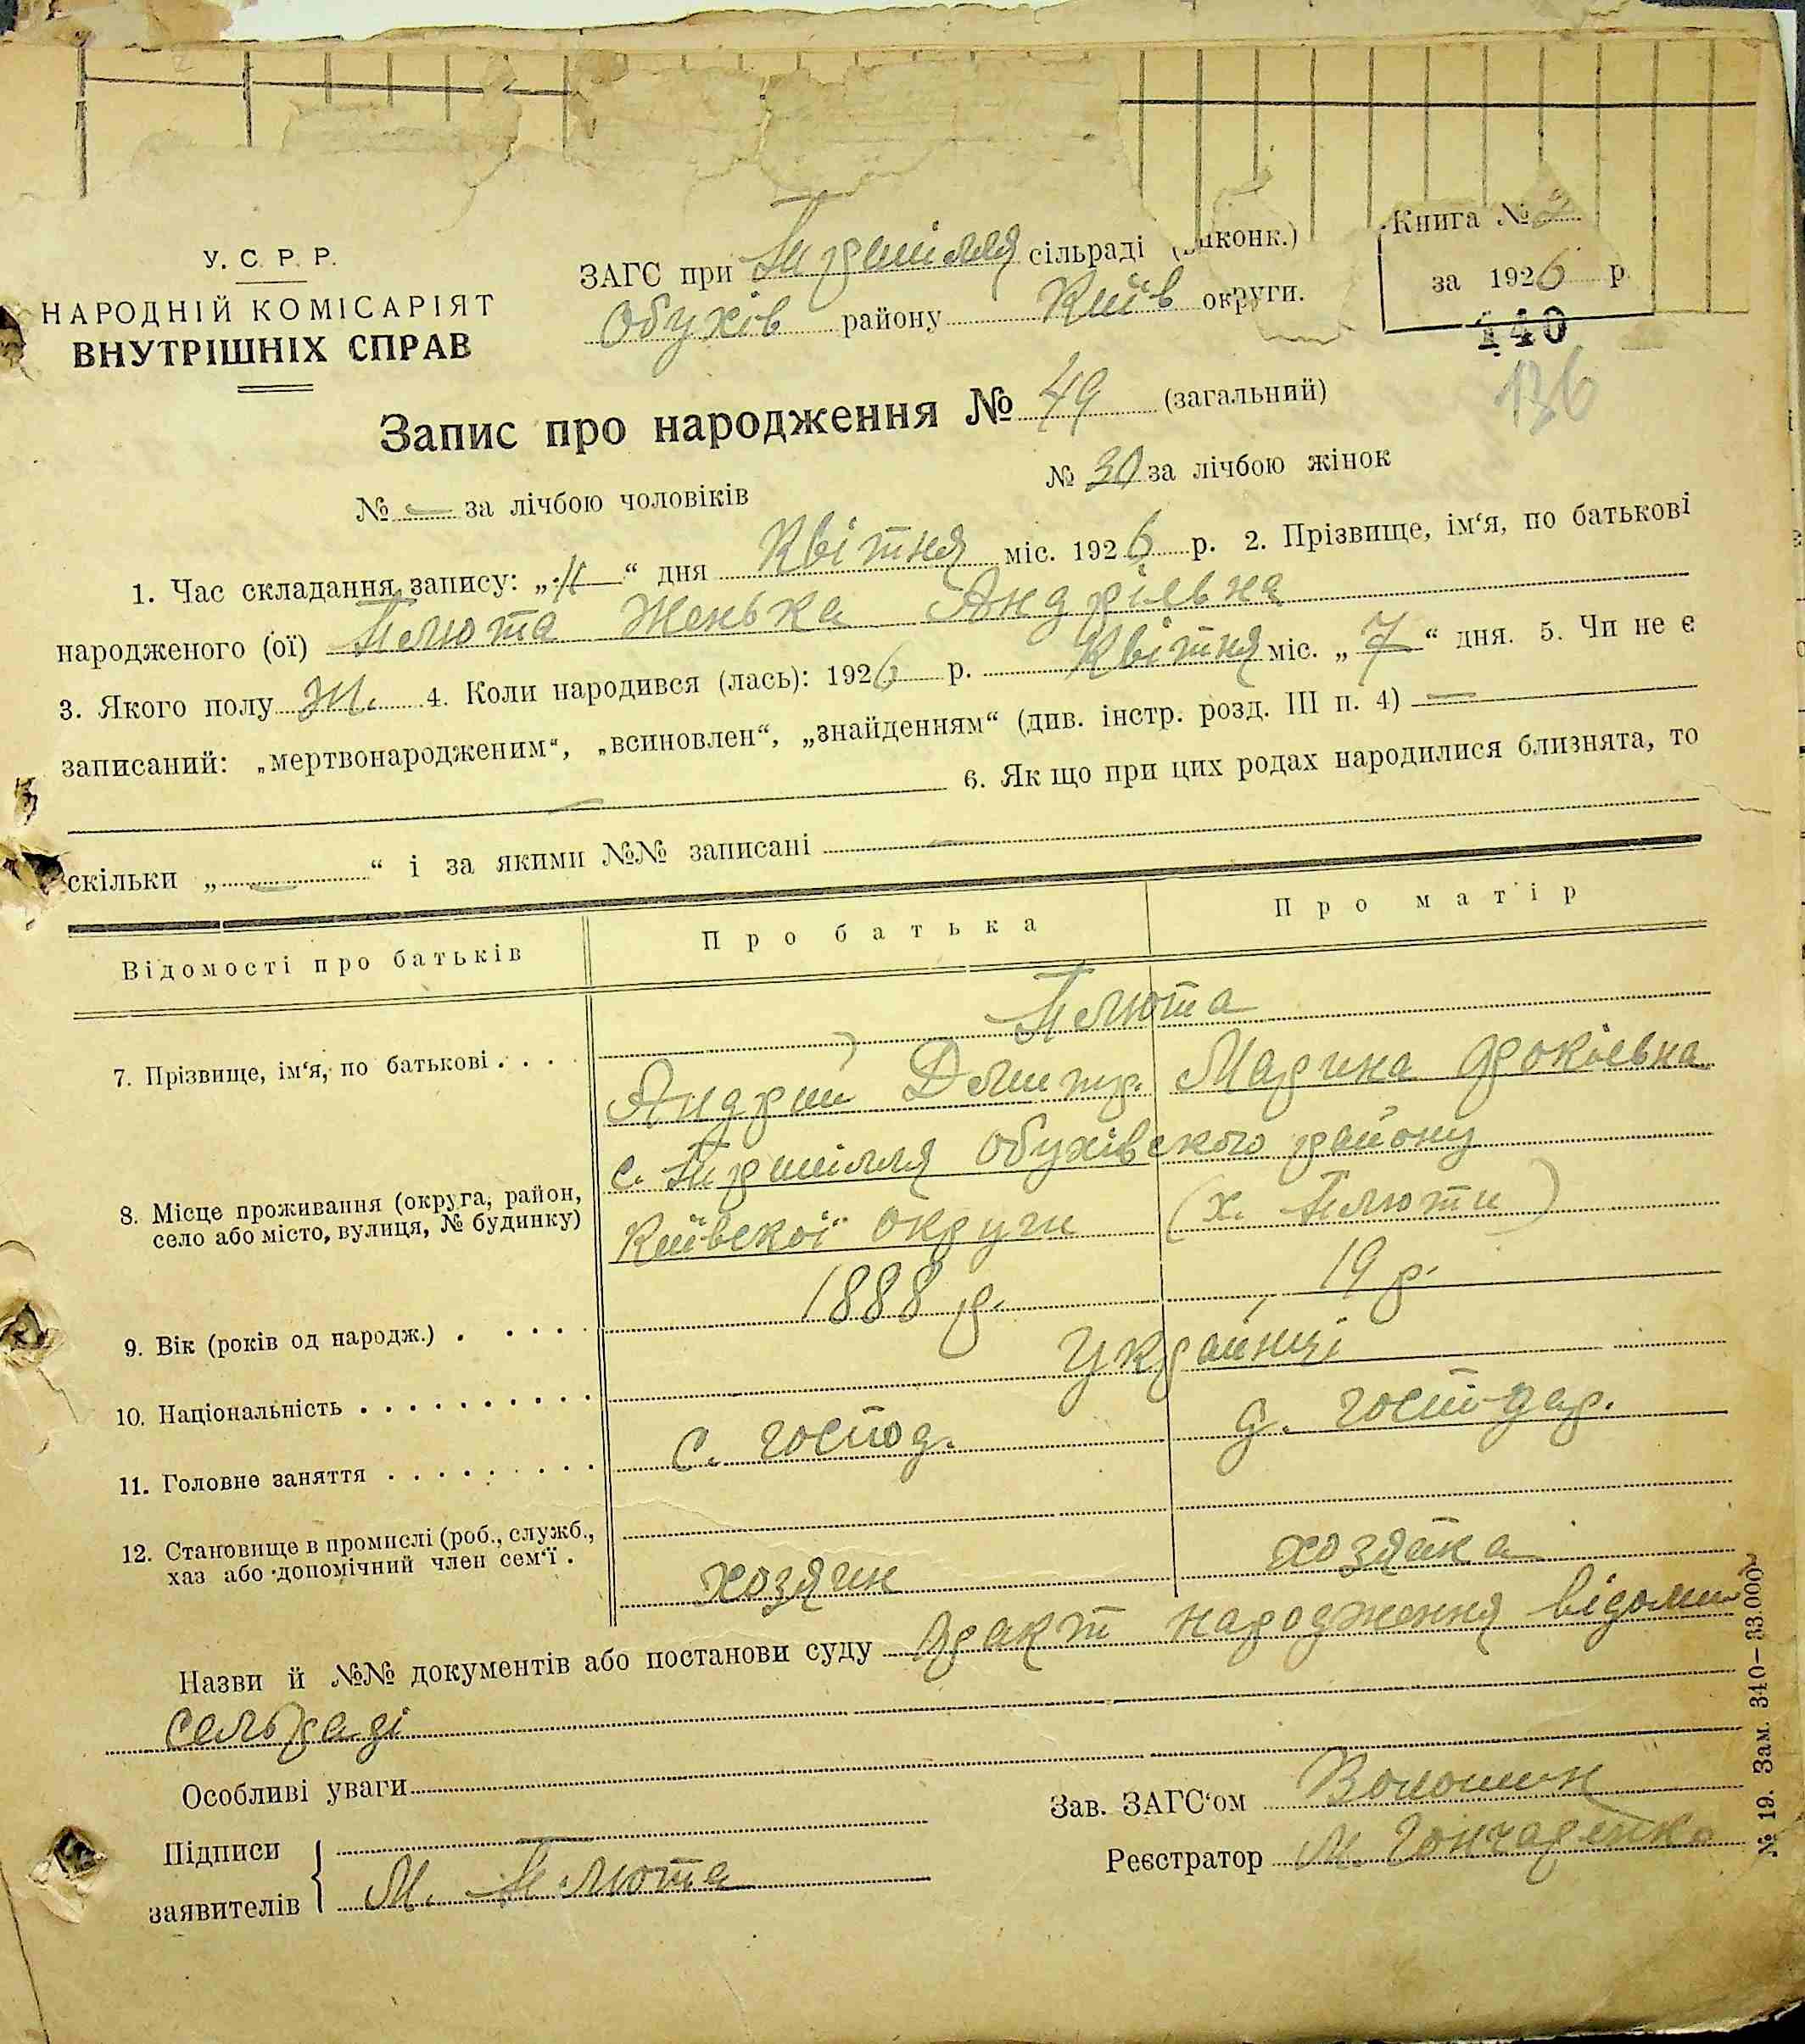 У. С. Р. Р.
НАРОДНІЙ КОМІСАРІЯТ
ВНУТРІШНІХ СПРАВ
ЗАГС при сільраді (виконк.)
Обухів району Київ округи.
Книга №
за 1926 р.
140
136
Запис про народження № 49 (загальний)
№ — за лічбою чоловіків № 30 за лічбою жінок
1. Час складання запису: „ “ дня Квітня міс. 1926 р. 2. Прізвище, ім‘я, по батькові
народженого (ої) Плюта Женька Андріівна
3. Якого полу Ж. 4. Коли народився (лась): 1926 р. Квітня міс. „7“ дня. 5. Чи не є
записаний: „мертвонародженим“, „всиновлен“, „знайденням“ (див. інстр. розд. III п. 4) —
— 6. Як що при цих родах народилися близнята, то
скільки „ — “ і за якими №№ записані —
Відомості про батьків Про батька Про матір
Плюта
7. Прізвище, ім‘я, по батькові . . . . Андрий Дмитр. Марина
с. Обухівского району
8. Місце проживання (округа, район,
село або місто, вулиця, № будинку) Київскої округи (х. Плюти)
9. Вік (років од народж.) . . . . . 1888 р. 19 р.
10. Національність . . . . . . . . . . Українці
11. Головне заняття . . . . . . . . . с. господ. д. господар.
12. Становище в промислі (роб., служб.,
хаз або допомічний член сем‘ї . хозяин хозяйка
Назви й №№ документів або постанови суду факт народження відомий
сельраді
Особливі уваги
Підписи
заявителів М. Плюта
Зав. ЗАГС‘ом Волошин
Реєстратор М. Гончаренко
№ 19. Зам. 340—33.000